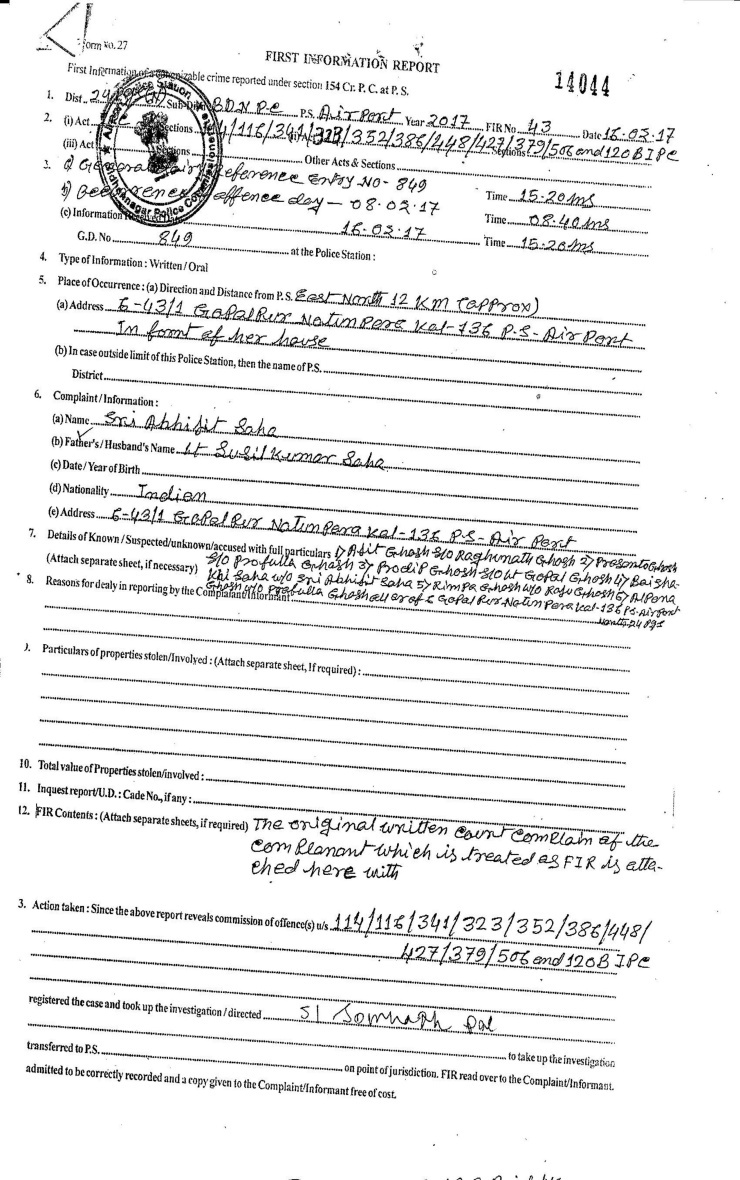 Form No. 27
FIRST INFORMATION REPORT
14044
First Information of a cognizable crime reported under section 154 Cr. P. C. at P. S.
1. Dist. 24 Sub-Divn. BDN P.C P.S. Air Port Year 2017 FIR No. 43 Date 16.03.17
2. (i) Act Sections 114/116/341/323/352/386/448/427/379/506 and 120B IPC
(iii) Act Sections Other Acts & Sections
3. a) General diary reference Entry NO- 849 Time 15-20 hrs
b) Occurrence offence day – 08.03.17 Time 08.40 hrs
(c) Information Received 16.03.17
G.D. No. 849 at the Police Station : Time 15-20 hrs
4. Type of Information : Written / Oral
5. Place of Occurrence : (a) Direction and Distance from P.S. East North 12 KM (approx)
(a) Address E-43/1 GoPalPur Natun Para Kol-136 P.S-Air Port
In front of her house
(b) In case outside limit of this Police Station, then the name of P.S.
District
6. Complaint / Information :
(a) Name Sri Abhijit Saha
(b) Father's / Husband's Name Lt Susil Kumar Saha
(c) Date / Year of Birth
(d) Nationality Indian
(e) Address E-43/1 GoPal Pur Natun Para Kol-136 P.S-Air Port
7. Details of Known / Suspected/unknown/accused with full particulars 1) Ajit Ghosh S/O Raghunath Ghosh 2) Prosanto Ghosh
(Attach separate sheet, if necessary) S/O Profulla Ghosh 3) Prodip Ghosh S/O Lt Gopal Ghosh 4) Baisha-
Khi Saha W/O Sri Abhijit Saha 5) Rimpa Ghosh W/O Raju Ghosh 6) Alpona
8. Reasons for dealy in reporting by the Complaiand/Informant Ghosh W/O Profulla Ghosh all are of E GoPal Pur Natun Para Kol-136 P.S-Airport
North 24 Pgs
9. Particulars of properties stolen/Involyed : (Attach separate sheet, If required) :
10. Total value of Properties stolen/involved :
11. Inquest report/U.D. : Cade No., if any :
12. FIR Contents : (Attach separate sheets, if required) The original written Court Complain of the
Complenant which is treated as FIR is atta-
ched here with
3. Action taken : Since the above report reveals commission of offence(s) u/s 114/116/341/323/352/386/448/
427/379/506 and 120B IPC
registered the case and took up the investigation / directed SI Somnath Pal
to take up the investigation
transferred to P.S. on point of jurisdiction. FIR read over to the Complaint/Informant.
admitted to be correctly recorded and a copy given to the Complaint/Informant free of cost.